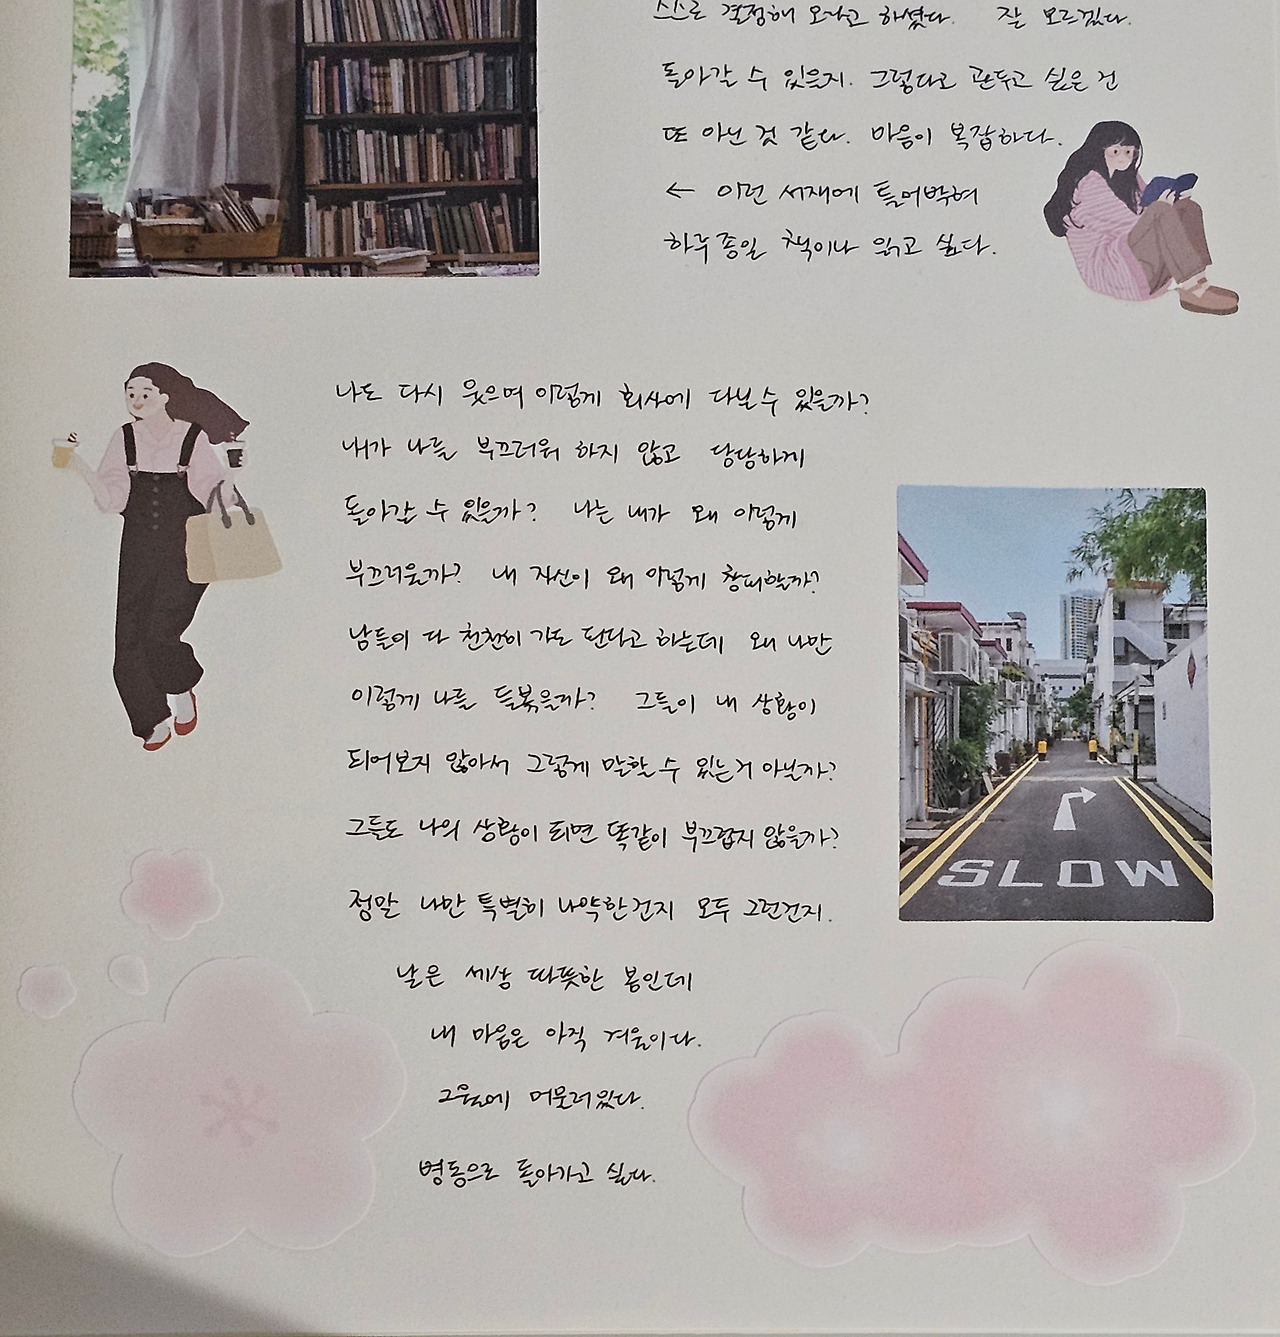 스스로 결정해 오라고 하셨다. 잘 모르겠다.
돌아갈 수 있을지. 그렇다고 관두고 싶은 건
또 아닌 것 같다. 마음이 복잡하다.
← 이런 서재에 틀어박혀
하루종일 책이나 읽고 싶다.
나도 다시 웃으며 이렇게 회사에 다닐 수 있을까?
내가 나를 부끄러워 하지 않고 당당하게
돌아갈 수 있을까? 나는 내가 왜 이렇게
부끄러울까? 내 자신이 왜 이렇게 창피할까?
남들이 다 천천히 가도 된다고 하는데 왜 나만
이렇게 나를 들볶을까? 그들이 내 상황이
되어보지 않아서 그렇게 말할 수 있는거 아닐까?
그들도 나의 상황이 되면 똑같이 부끄럽지 않을까?
정말 나만 특별히 나약한건지 모두 그런건지.
SLOW
날은 세상 따뜻한 봄인데
내 마음은 아직 겨울이다.
그늘에 머물러있다.
병동으로 돌아가고 싶다.